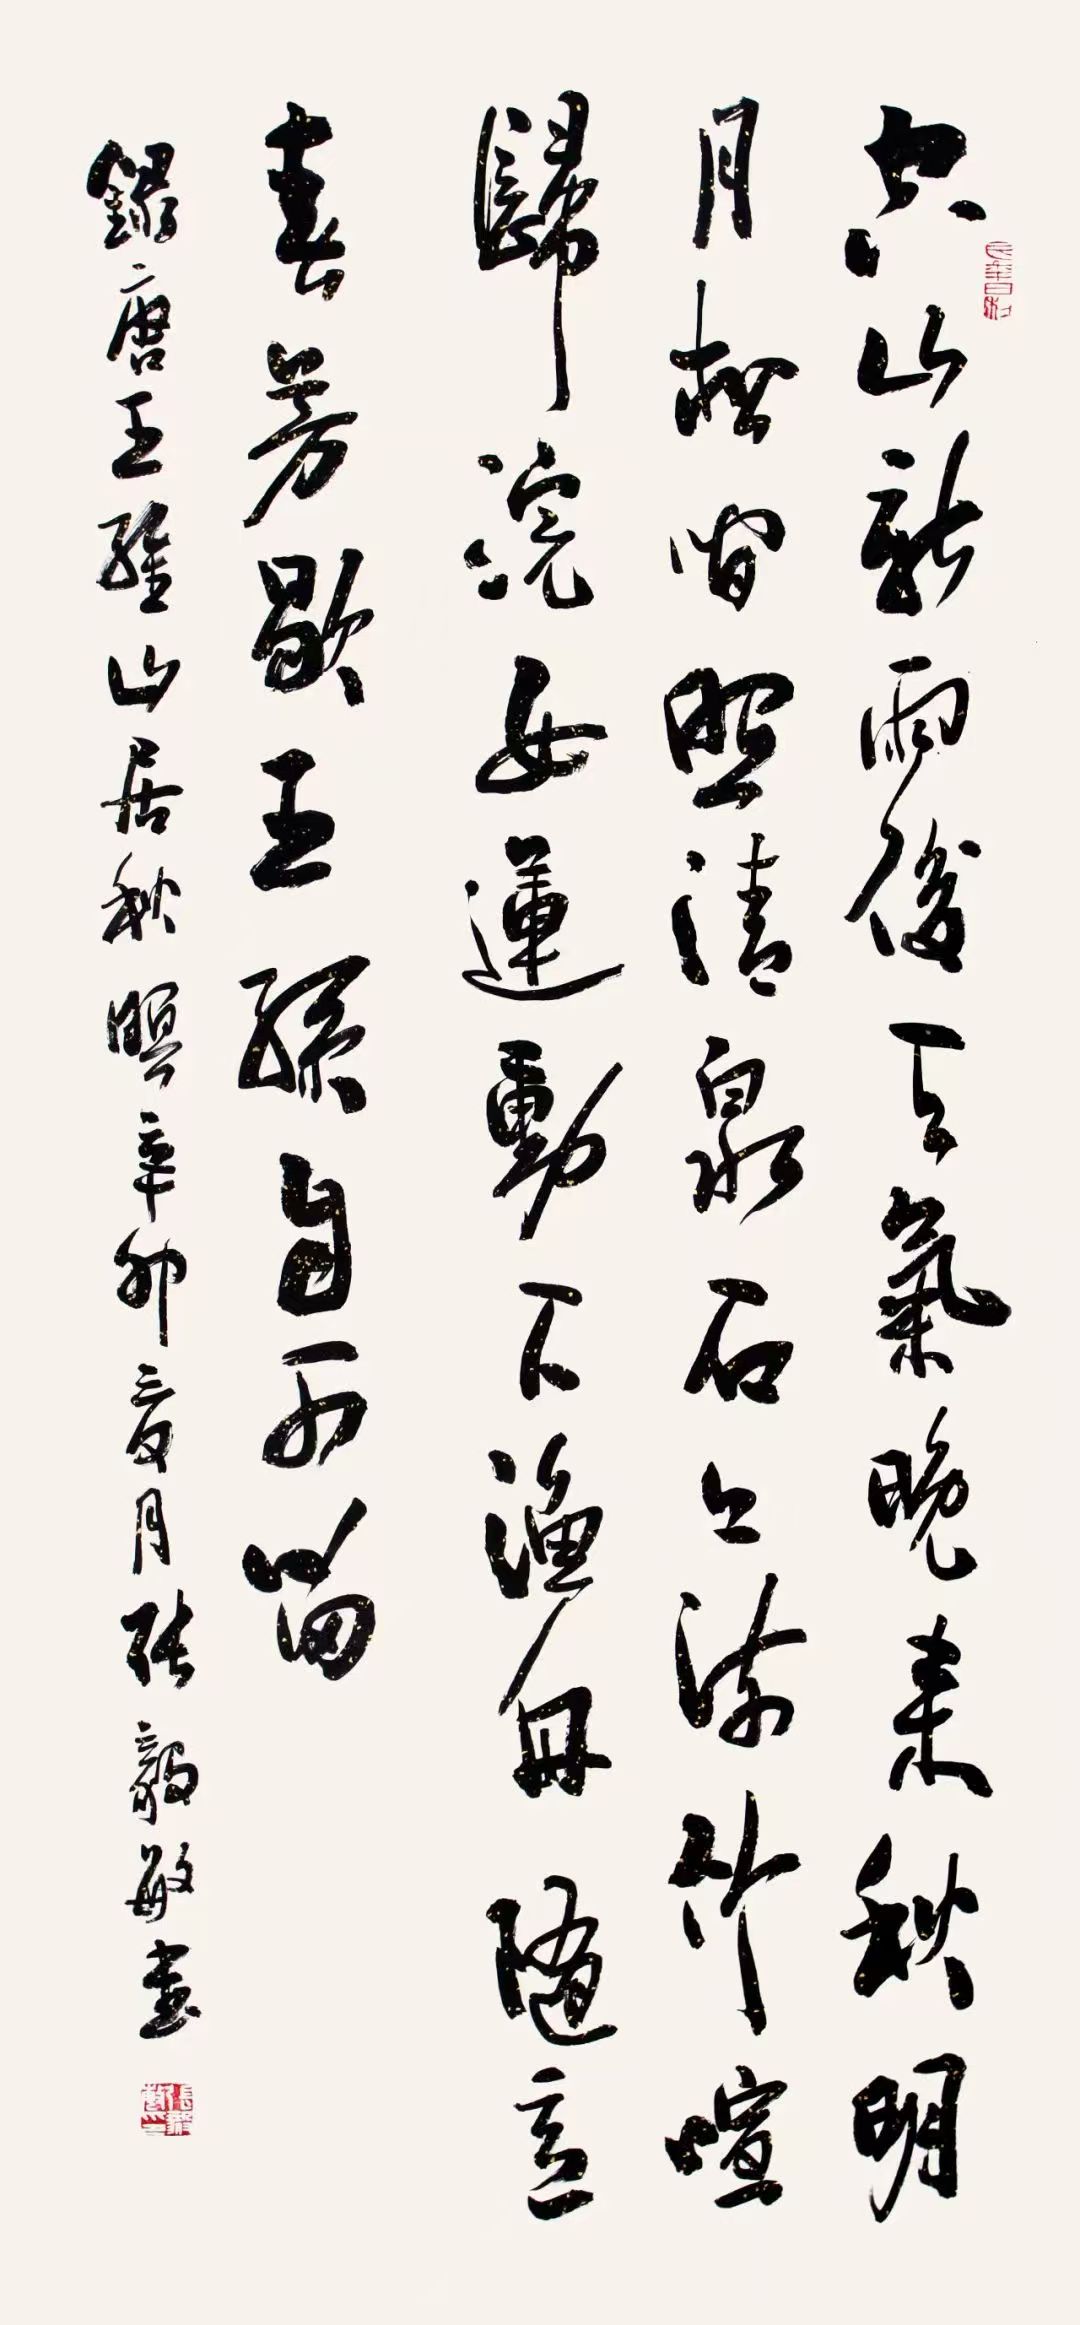 空山新雨後天氣晚來秋明
月松間照清泉石上流竹喧
歸浣女蓮動下漁舟隨意
春芳歇王孫自可留
錄唐王維山居秋暝辛卯夏月張毅敏書